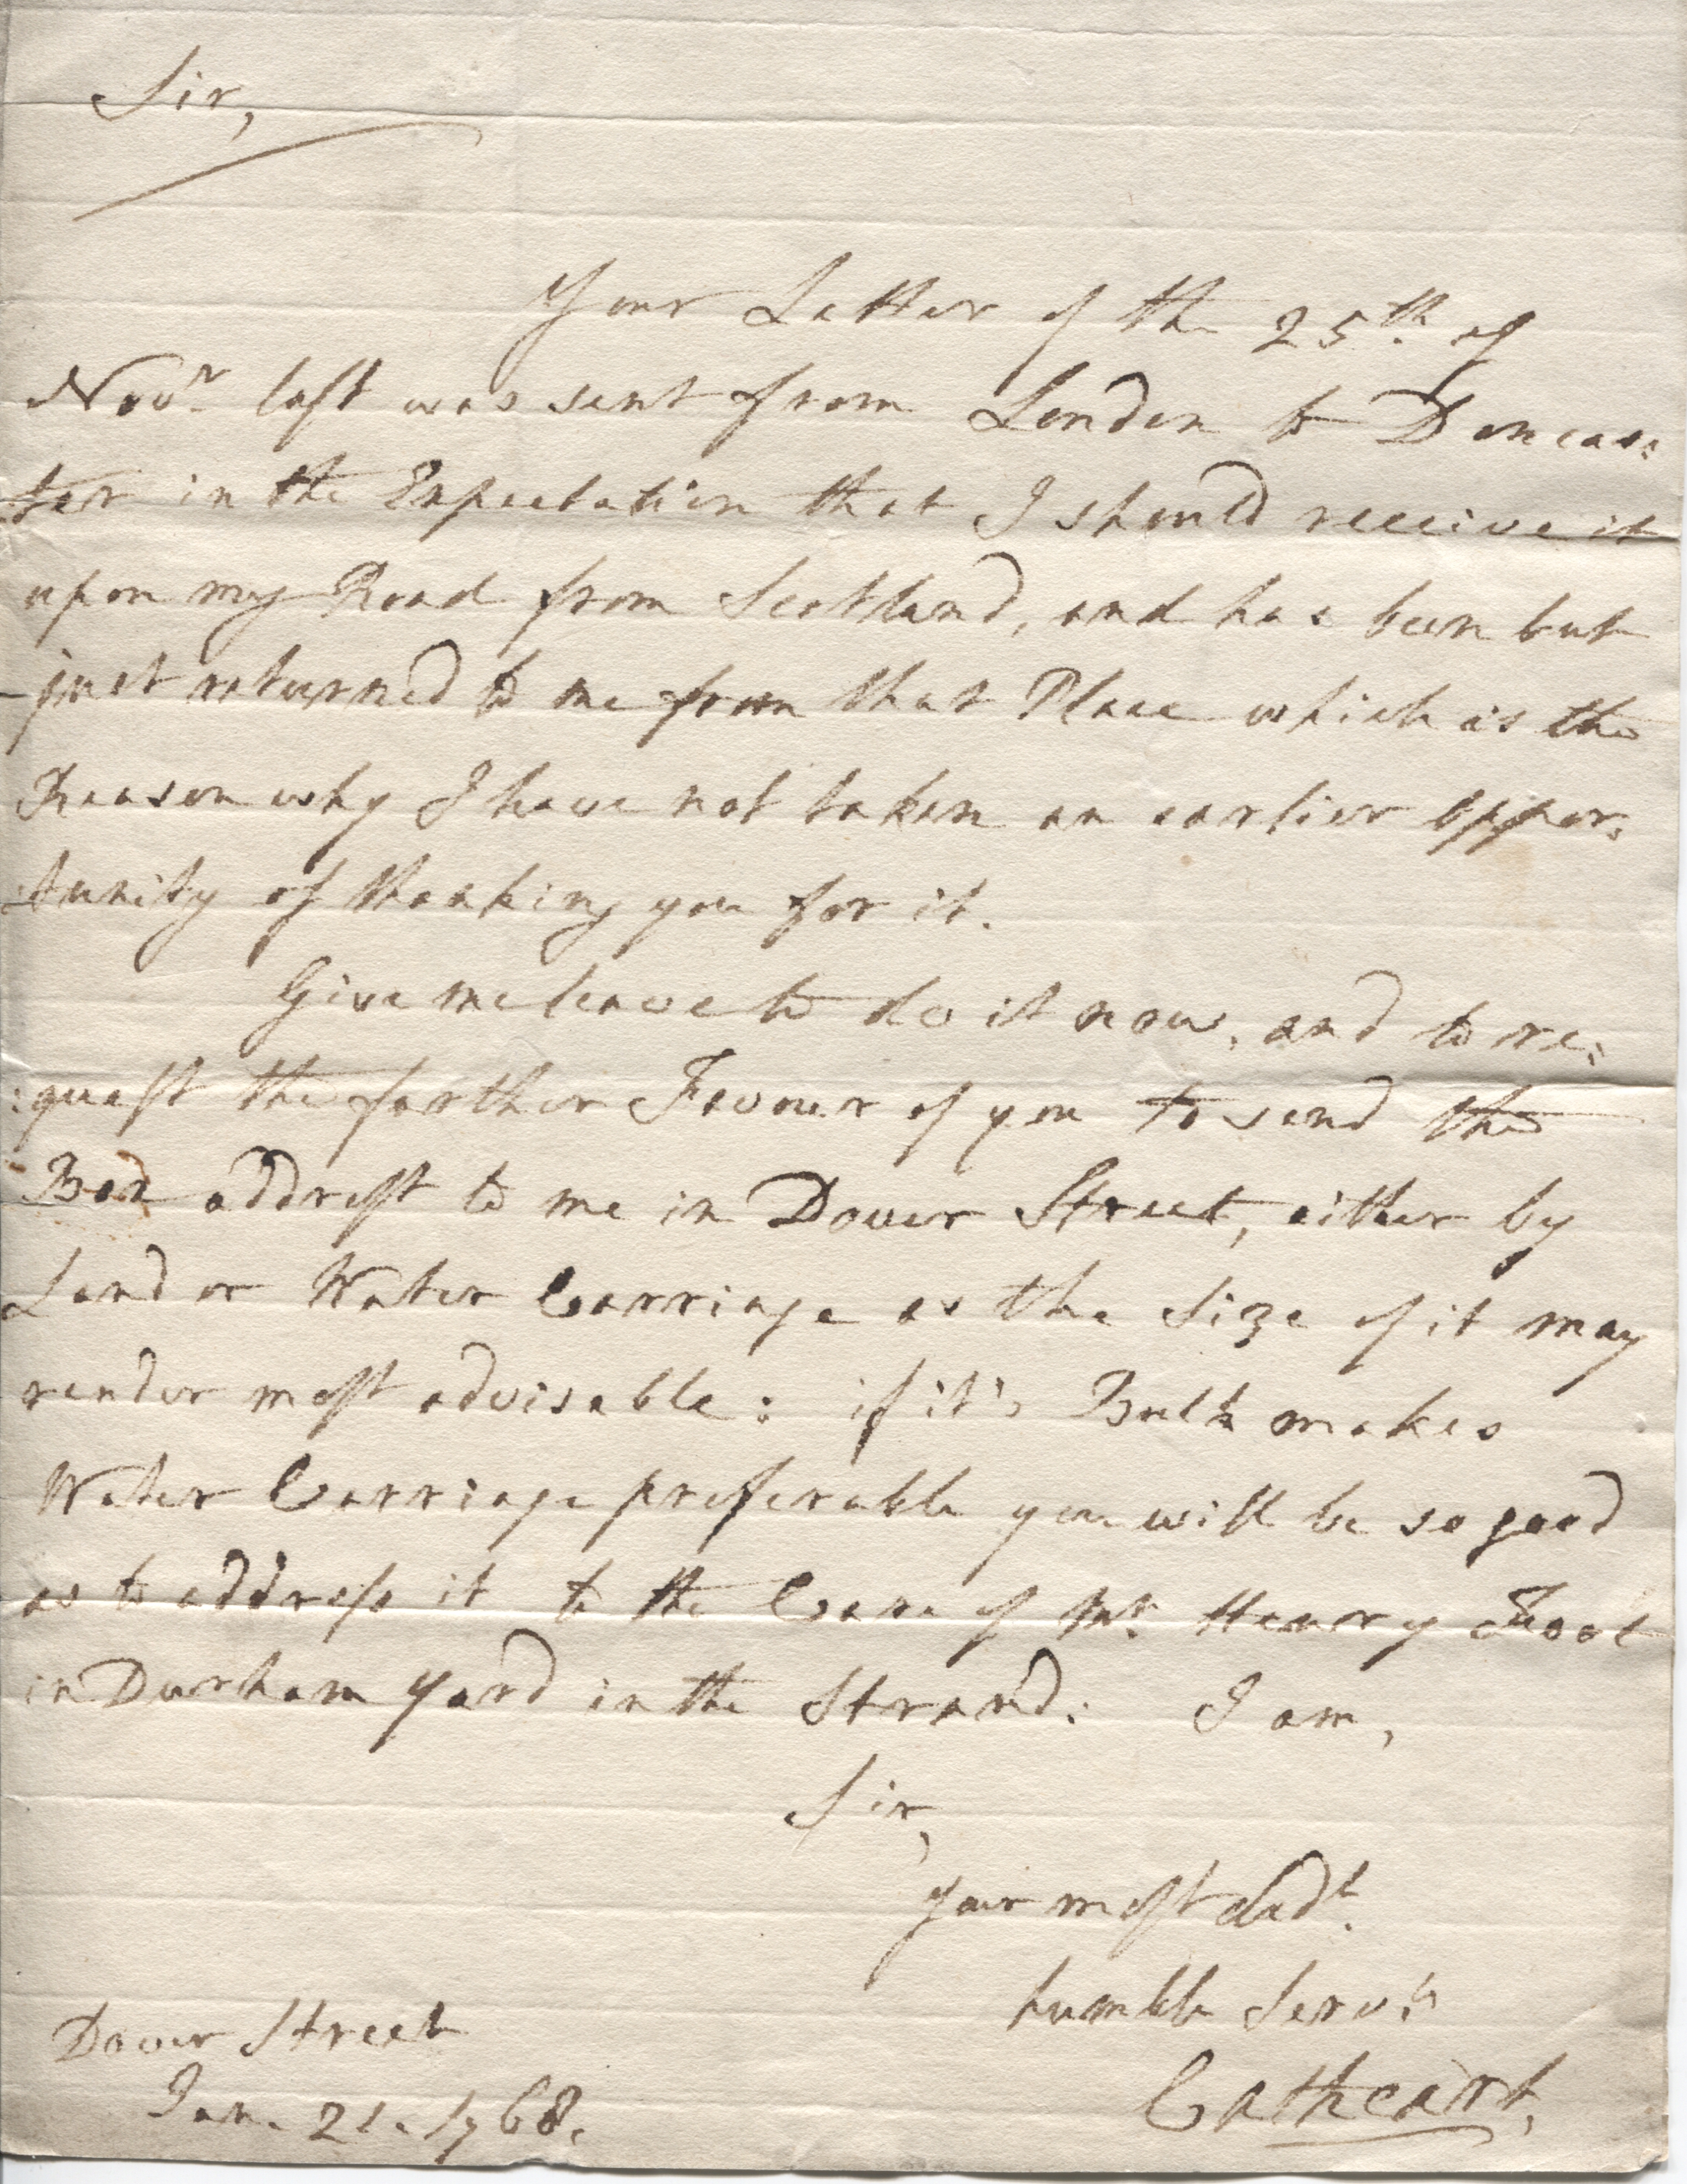 Sir,
Your Letter of the 25th. of
Novr. last was sent from London to Doncas:
:ter in the Expectation that I should receive it
upon my Road from Scotland, and has been but
just returned to me from that Place which is the
Reason why I have not taken an earlier oppor:
:tunity of thanking you for it.
Give me leave to do it now, and to re:
:quest the farther Favour of you to send the
Box addrest to me in Dover Street, either by
Land or Water Carriage as the Size of it may
render most advisable: if it's Bulk makes
Water Carriage preferable you will be so good
as to address it to the Care of Mr. Henry Foot
in Durham Yard in the Strand. I am,
Sir,
Your most obedt.
humble Servt.
Cathcart.
Dover Street
Jan. 21. 1768.